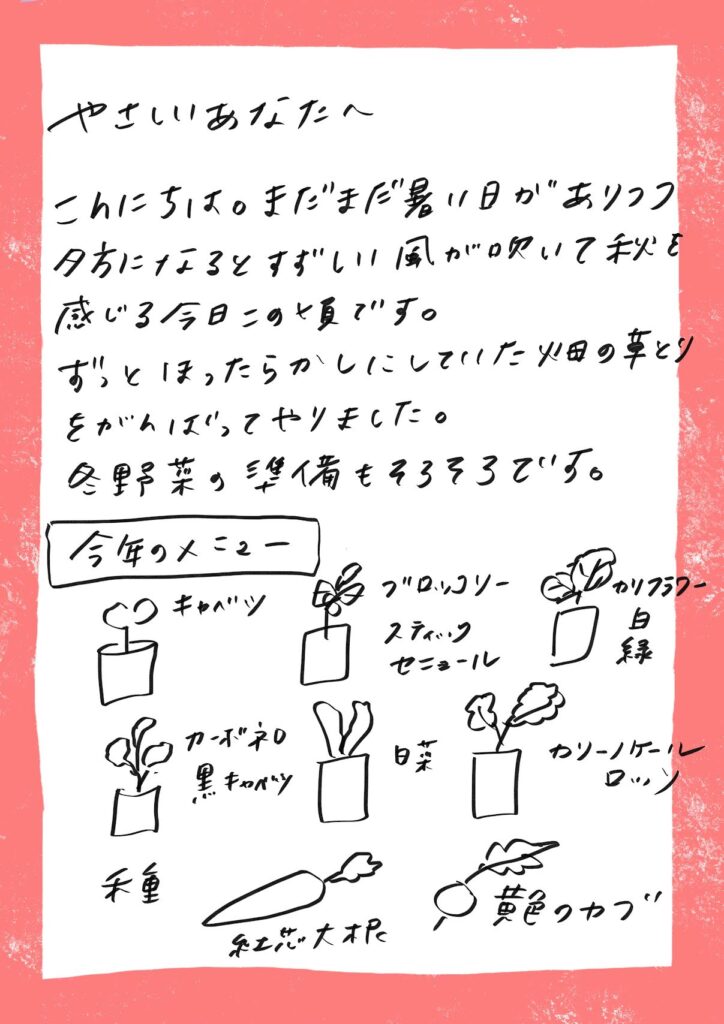 やさしいあなたへ
こんにちは。まだまだ暑い日がありつつ
夕方になるとすずしい風が吹いて秋を
感じる今日この頃です。
ずっとほったらかしにしていた畑の草とり
をがんばってやりました。
冬野菜の準備もそろそろです。
今年のメニュー
キャベツ
ブロッコリー
スティック
セニョール
カリフラワー
白
緑
カーボネロ
黒キャベツ
白菜
カリーノケール
ロッソ
紅芯大根
黄色のカブ